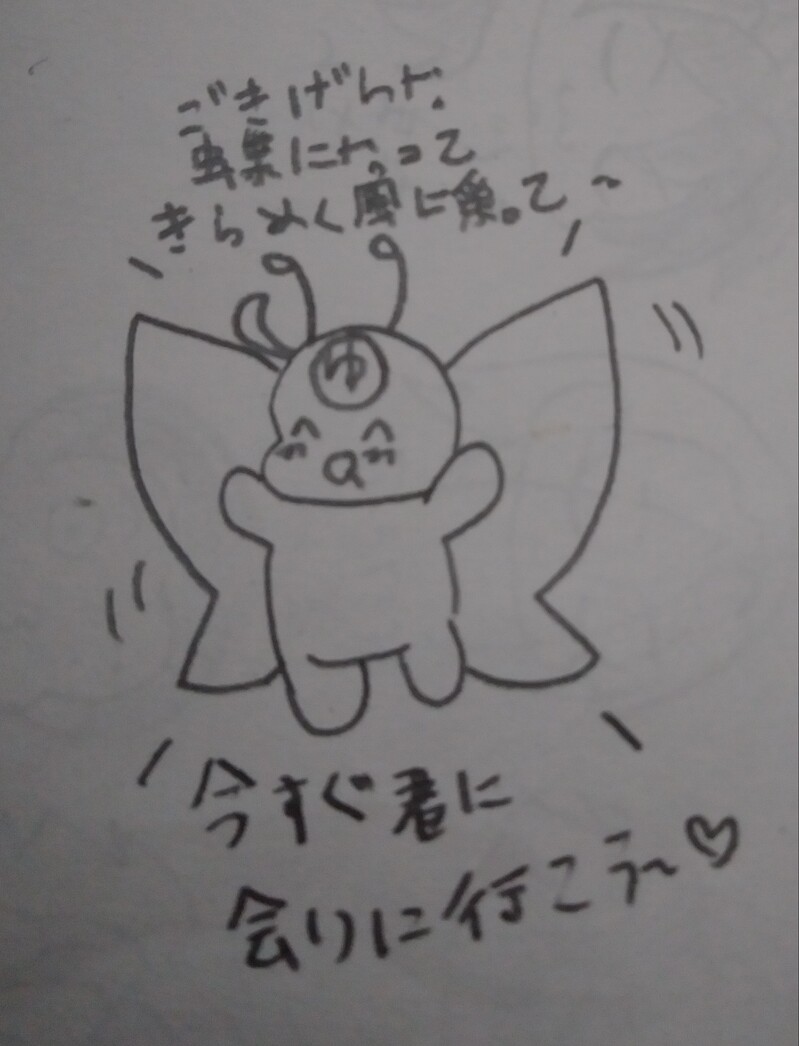 ごきげんな
蝶になって
きらめく風に乗って~
ゆ
今すぐ君に
会りに行こう~♡